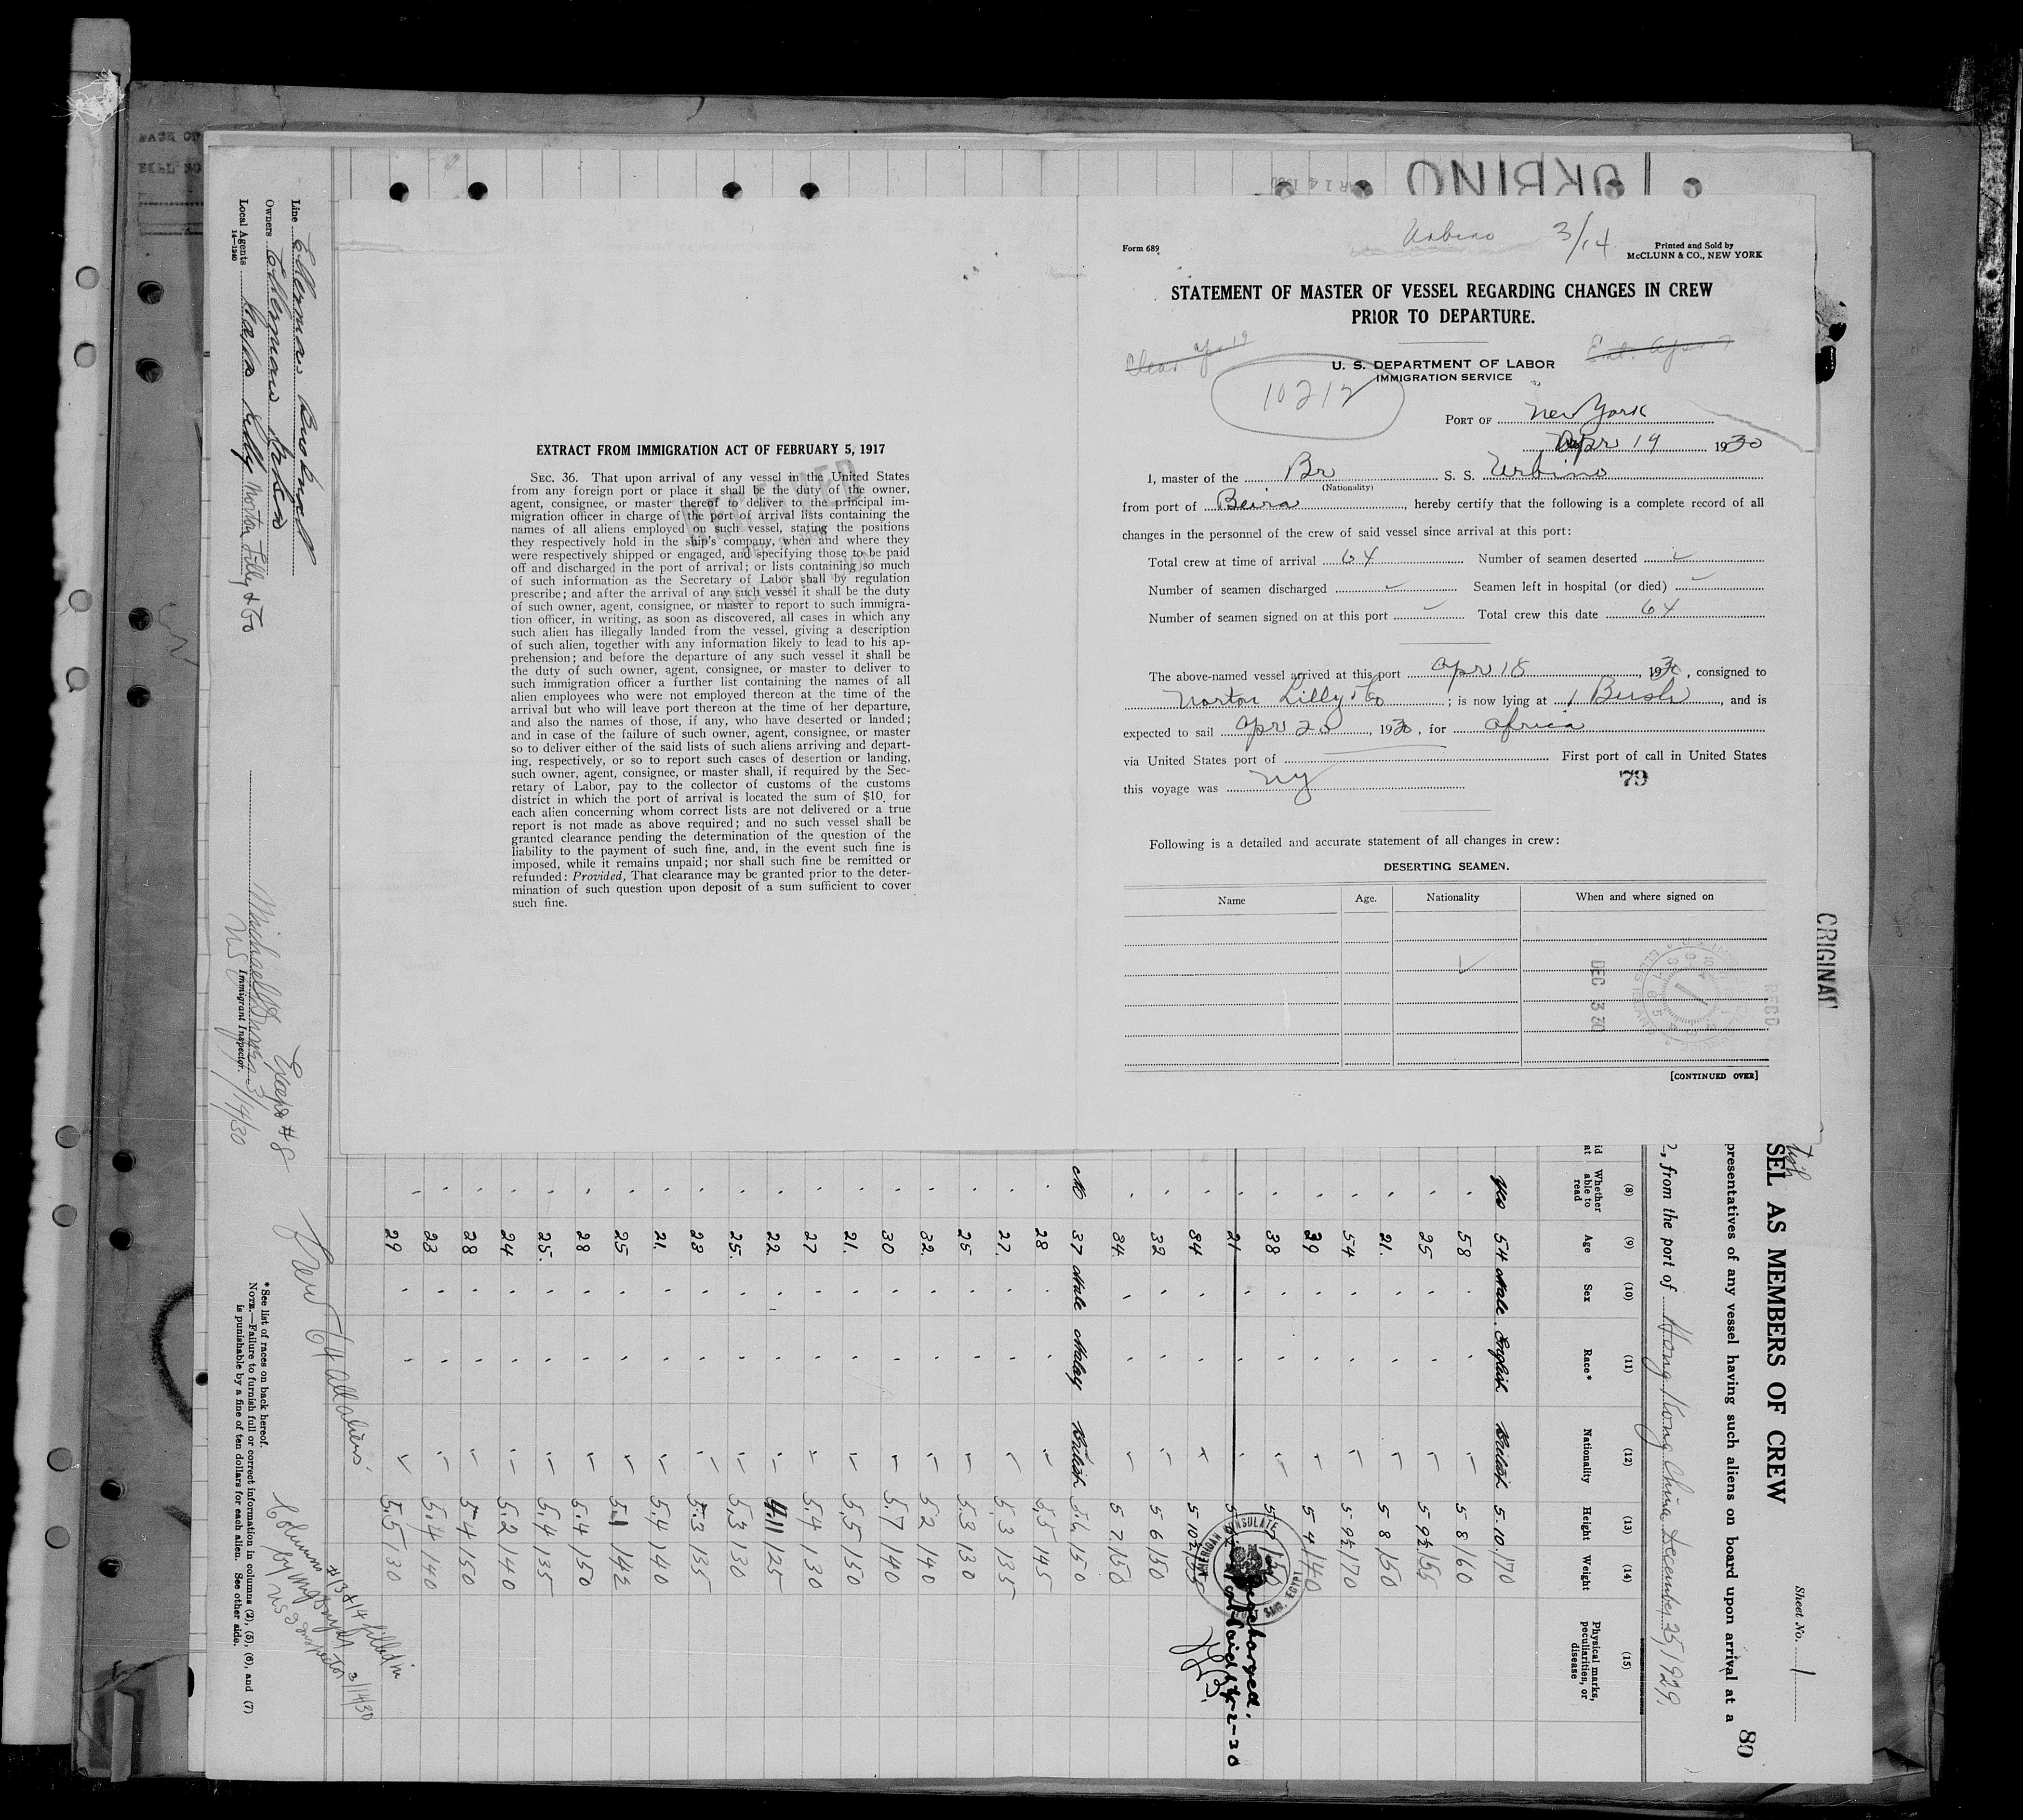 URBINO
Urbino 3/14
Form 689
Printed and Sold by
McCLUNN & CO., NEW YORK
STATEMENT OF MASTER OF VESSEL REGARDING CHANGES IN CREW
PRIOR TO DEPARTURE.
U. S. DEPARTMENT OF LABOR
IMMIGRATION SERVICE
10212
PORT OF New York
Apr 19 1930
I, master of the Br S. S. Urbino
(Nationality)
from port of Beira, hereby certify that the following is a complete record of all
changes in the personnel of the crew of said vessel since arrival at this port:
Total crew at time of arrival 64 Number of seamen deserted ✓
Number of seamen discharged ✓ Seamen left in hospital (or died) ✓
Number of seamen signed on at this port ✓ Total crew this date 64
The above-named vessel arrived at this port Apr 18, 1930, consigned to
Norton Lilly & Co; is now lying at 1 Bush, and is
expected to sail Apr 20, 1930, for Africa
via United States port of First port of call in United States
this voyage was NY
79
Following is a detailed and accurate statement of all changes in crew:
DESERTING SEAMEN.
Name Age. Nationality When and where signed on
DEC 3 30
[CONTINUED OVER]
EXTRACT FROM IMMIGRATION ACT OF FEBRUARY 5, 1917
SEC. 36. That upon arrival of any vessel in the United States
from any foreign port or place it shall be the duty of the owner,
agent, consignee, or master thereof to deliver to the principal im-
migration officer in charge of the port of arrival lists containing the
names of all aliens employed on such vessel, stating the positions
they respectively hold in the ship's company, when and where they
were respectively shipped or engaged, and specifying those to be paid
off and discharged in the port of arrival; or lists containing so much
of such information as the Secretary of Labor shall by regulation
prescribe; and after the arrival of any such vessel it shall be the duty
of such owner, agent, consignee, or master to report to such immigra-
tion officer, in writing, as soon as discovered, all cases in which any
such alien has illegally landed from the vessel, giving a description
of such alien, together with any information likely to lead to his ap-
prehension; and before the departure of any such vessel it shall be
the duty of such owner, agent, consignee, or master to deliver to
such immigration officer a further list containing the names of all
alien employees who were not employed thereon at the time of the
arrival but who will leave port thereon at the time of her departure,
and also the names of those, if any, who have deserted or landed;
and in case of the failure of such owner, agent, consignee, or master
so to deliver either of the said lists of such aliens arriving and depart-
ing, respectively, or so to report such cases of desertion or landing,
such owner, agent, consignee, or master shall, if required by the Sec-
retary of Labor, pay to the collector of customs of the customs
district in which the port of arrival is located the sum of $10 for
each alien concerning whom correct lists are not delivered or a true
report is not made as above required; and no such vessel shall be
granted clearance pending the determination of the question of the
liability to the payment of such fine, and, in the event such fine is
imposed, while it remains unpaid; nor shall such fine be remitted or
refunded: Provided, That clearance may be granted prior to the deter-
mination of such question upon deposit of a sum sufficient to cover
such fine.
RECEIVED
ORIGINAL
Sheet No. 1
80
SEL AS MEMBERS OF CREW
presentatives of any vessel having such aliens on board upon arrival at a
, from the port of Hong Kong China December 25, 1929.
(8) (9) (10) (11) (12) (13) (14) (15)
Whether able to read Age Sex Race* Nationality Height Weight Physical marks, peculiarities, or disease
yes 54 Male English British 5.10. 170
58 5 8 160
25 5 9½ 165
21. 5 8 150
54 5 9½ 170
39 5 4 140
38 5 7 150
21 Discharged. Port Said 4-2-30
34 5 10½
32 5 6 150
34. 5 7 150
No 37 Male Malay British 5.6 150
28 5.5 145
27. 5.3 135
25 5.3 130
32. 5.2 140
30 5.7 140
21. 5.5 150
27 5.4 130
22. 4.11 125
25. 5.3 130
23 5.3 135
21. 5.4 140
25 5.1 142
28 5.4 150
25. 5.4 135
24 5.2 140
28 5.4 150
23 5.4 140
29 5.5 130
AMERICAN CONSULATE
SAID, EGYPT
Line Ellerman Bucknall
Owners Ellerman
Local Agents Norton Lilly & Co
14—1240
Except # 8
3/14/30
Immigrant Inspector.
Crew 64 all aliens.
*See list of races on back hereof.
NOTE.—Failure to furnish full or correct information in columns (2), (5), (6), and (7)
is punishable by a fine of ten dollars for each alien. See other side.
Columns #13 & 14 filled in
by
US Inspector 3/14/30